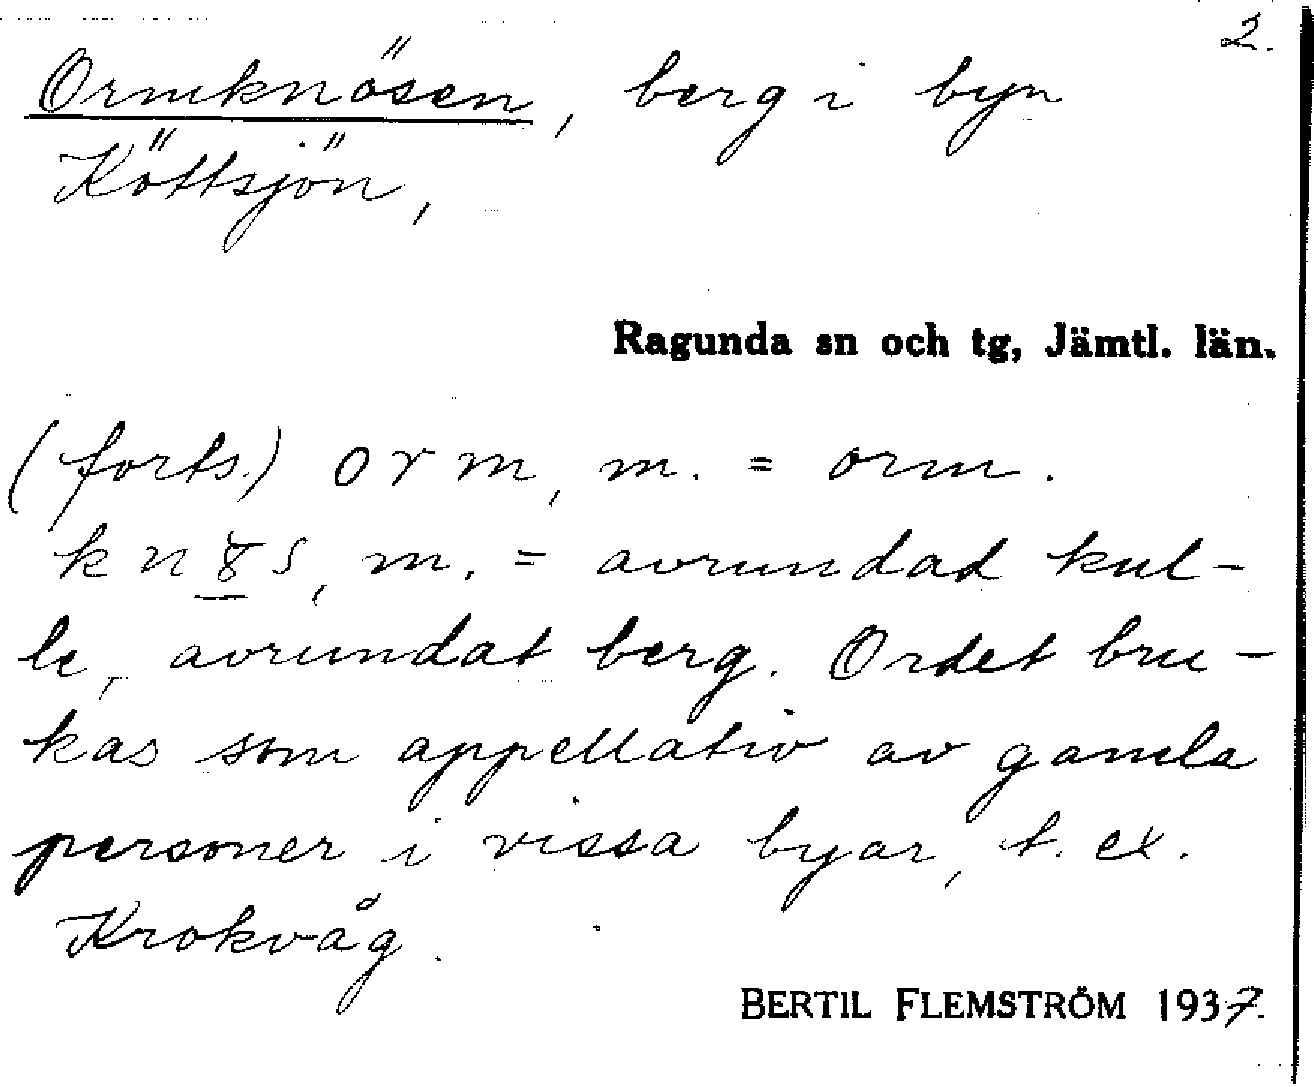 2.
Ormknösen, berg i byn
Köttsjön,
Ragunda sn och tg, Jämtl. län.
(forts.) orm, m. = orm.
m. = avrundad kul-
le, avrundat berg. Ordet bru-
kas som appellativ av gamla
personer i vissa byar, t. ex.
Krokvåg.
BERTIL FLEMSTRÖM 1937.